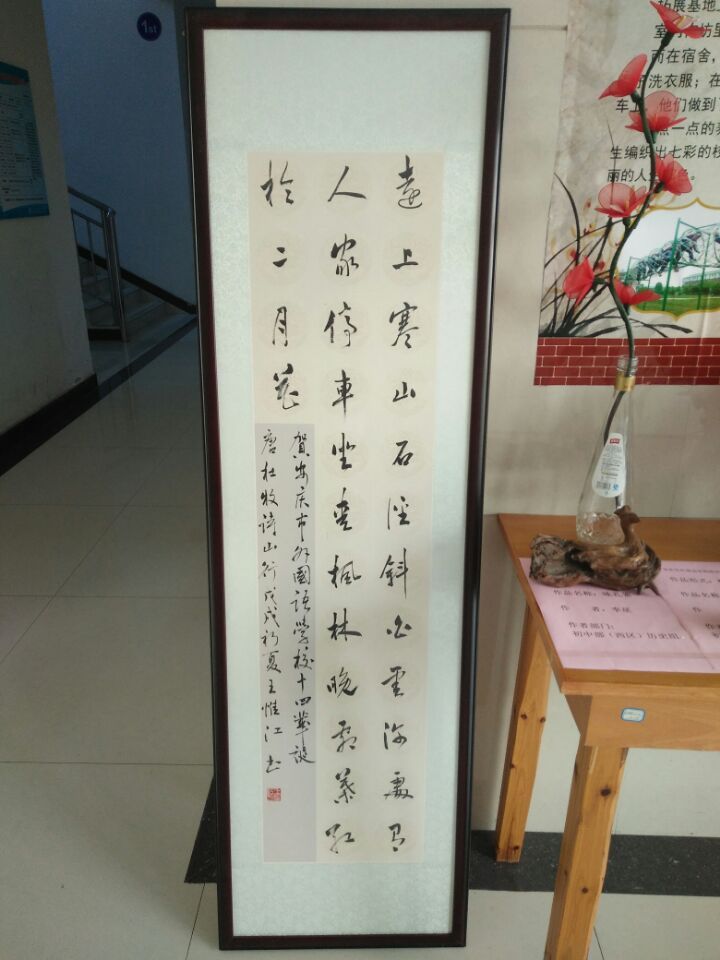 遠上寒山石徑斜白雲深處有
人家停車坐愛楓林晚霜葉紅
於二月花
賀安庆市外國语學校十四華誕
唐杜牧诗山行戊戌初夏王惟江书
1st
拓展基地上
而在宿舍，
洗衣服；在
车上，他们做到了
点一点的
生编织出七彩的
丽的人
作品名称：
作 者：李
作者部门：
初中部（西区）历史组
作品形式：
作品名称
作